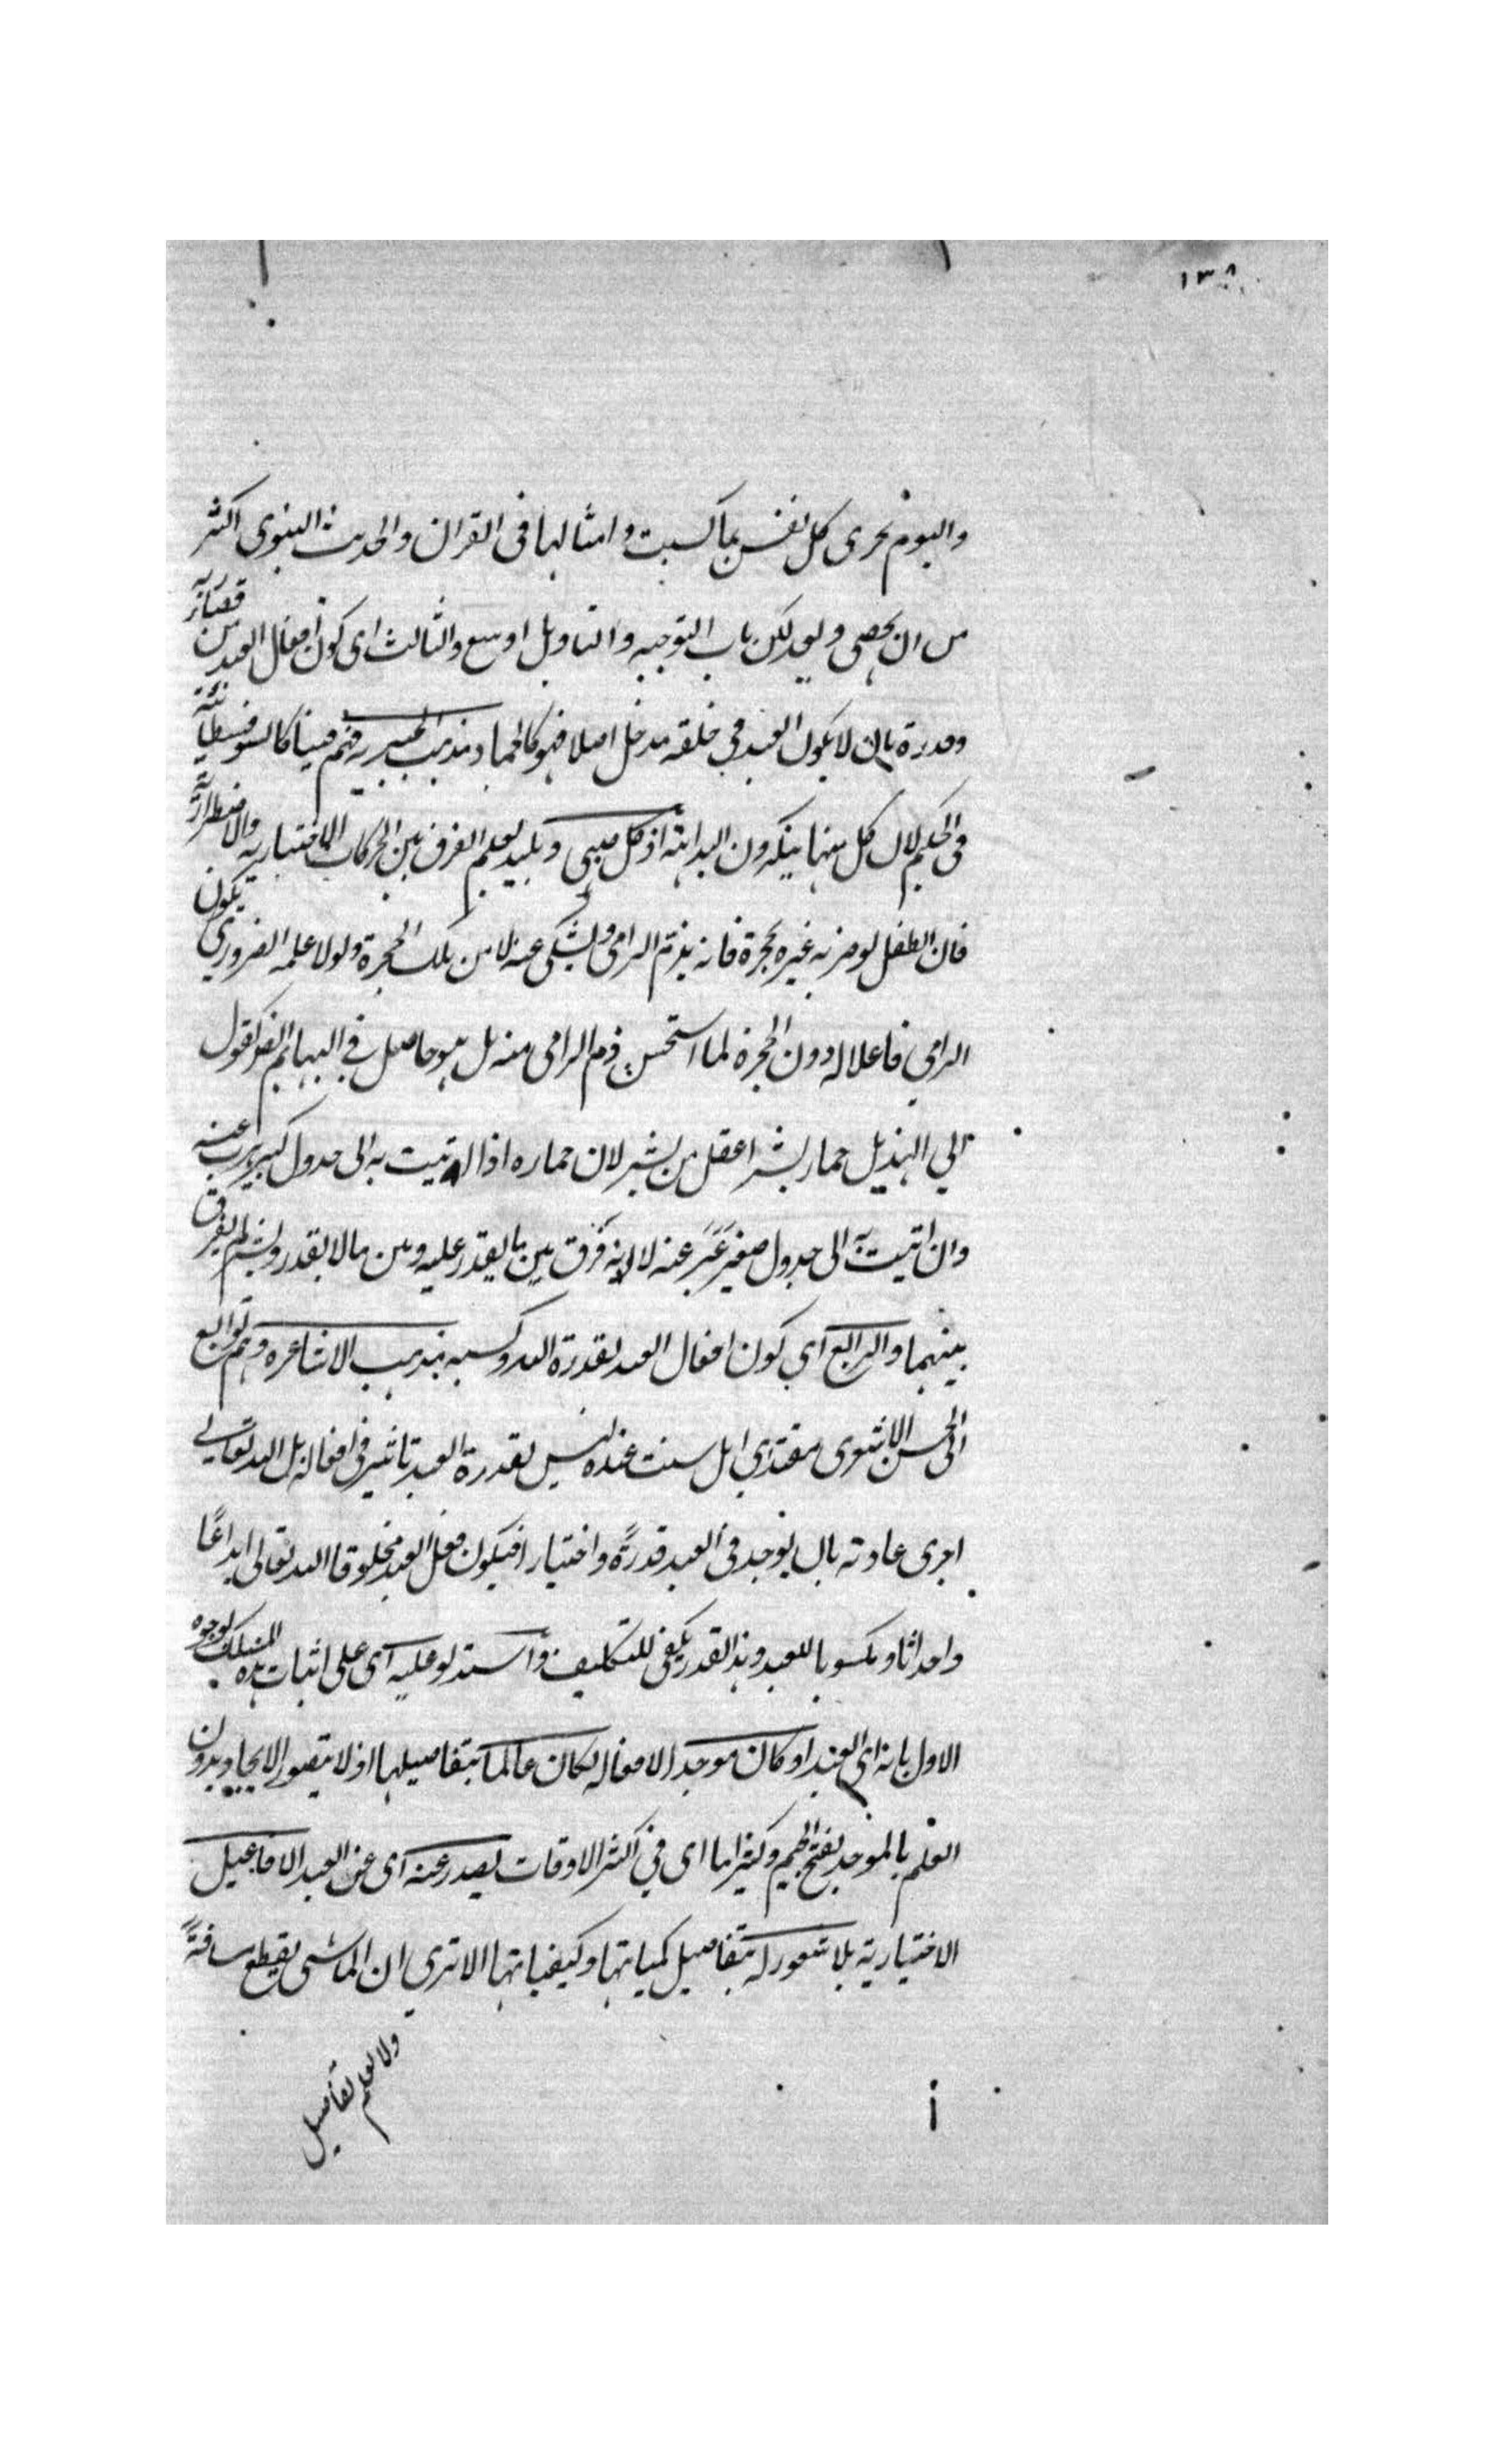 ١٣٨
واليوم تجزى كل نفس بما كسبت وامثالها فى القران والحديث النبوى اكثر
من ان يحصى ويعد لكن باب التوجيه والتاويل اوسع والثالث اى كون افعال العبد من قضائه
وقدرة بان لا يكون العبد في خلقه مدخل اصلا فهو كالجماد مذهب الجبرية فهم فينا كالسوفسطائية
فى الحكم لان كل منهما ينكرون البداهة اذ كل صبى وبليد يعلم الفرق بين الحركات الاختيارية والاضطرارية
فان الطفل لو ضربه غيره بحجرة فانه يذم الرامى ويشكى عنه لا من تلك الحجرة ولولا علمه الضرورى يكون
الرامي فاعلا له دون الحجرة لما استحسن ذم الرامى منه بل هو حاصل في البهائم الضر كقول
ابي الهذيل حمار بشر اعقل من بشر لان حماره اذا اتيت به الى جدول كبير يرب عنه
وان اتيت به الى جدول صغير عَبَر عنه لانه فَرَق بين ما يقدر عليه وبين ما لا يقدر وبشر لم يفرق
بينهما والرابع اي كون افعال العبد بقدرة الله وكسبه مذهب الاشاعره وهم توابع
ابى الحسن الاشعرى مقتداي اهل سنت عنده ليس بقدرة العبد تاثير فى افعاله بل الله تعالى
اجرى عادته بان يوجد فى العبد قدرةً واختيارا فيكون فعل العبد مخلوقا لله تعالى ابداعًا
واحداثا ومكسوبا للعبد وهذا القدر يكفى للتكليف واستدلو عليه اى على اثبات هذه المسلك بوجوه
الاول بانه اى العبد لو كان موجدا لافعاله لكان عالما بتفاصيلها اذ لا يتصور الايجاد بدون
العلم بالموجد بفتح الجيم وكثيرا ما اى في اكثر الاوقات يصدر عنه اى عن العبد الافاعيل
الاختيارية بلا شعور له بتفاصيل كمياتها وكيفياتها الا ترى ان الماشى يقطع مسافةً
ولا يعلم تفاصيل